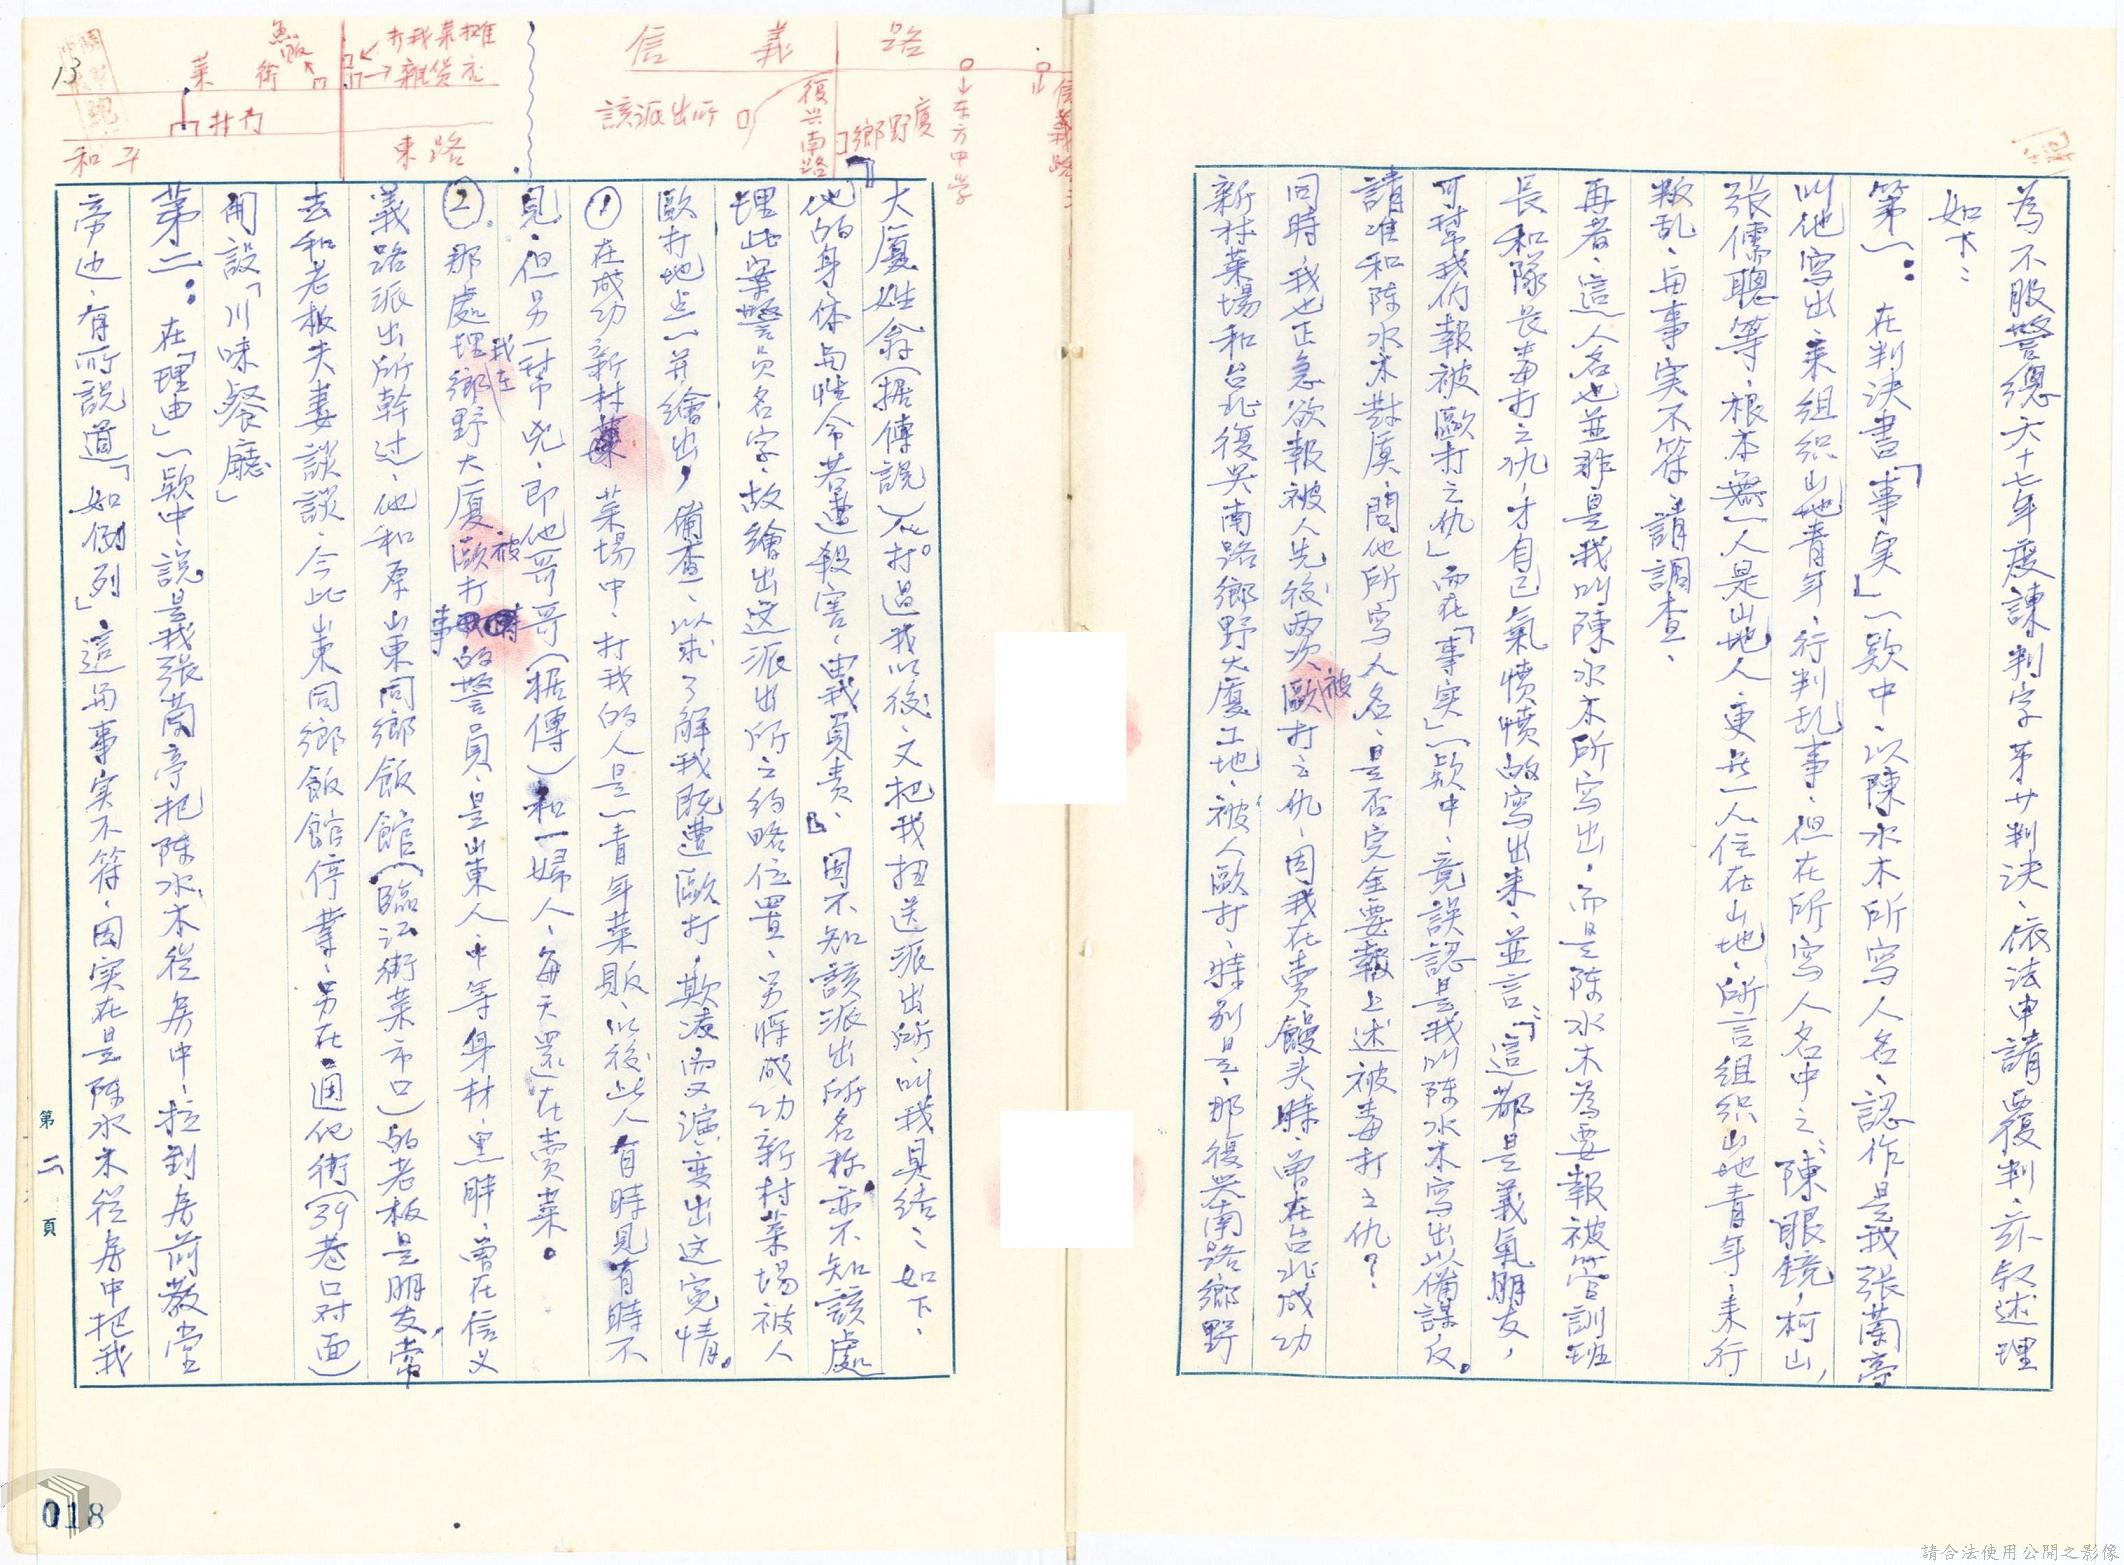 為不服警總六十七年度諫判字第廿判決、依法申請覆判、亦敘述理
如下：
第一：在判決書「事实」一欵中、以陳水木所寫人名、認作是我張蘭亭
叫他寫出來組织山地青年、行判乱事、但在所寫人名中之、陳眼鏡，柯山，
張儒聰等、根本無一人是山地人、更無一人住在山地、所言組织山地青年、來行
叛乱、与事实不符、請調查、
再者、這人名也並非是我叫陳水木所写出，而是陈水木為要報被管訓班
長和隊長毒打之仇，才自己氣憤憤的寫出來、並言「這都是義氣朋友，
可幫我們報被歐打之仇」而在「事实」一欵中、竟誤認是我叫陈水木寫出以備謀反。
請准和陈水木對质、問他所寫人名、是否完全要報上述被毒打之仇？
同時、我也正急欲報被人先後两次被歐打之仇、因我在卖饅头時、曾在台北成功
新村菜場和台北復兴南路鄉野大廈工地、被人歐打、特别是、那復兴南路鄉野
信義路
復兴南路
該派出所
鄉野廈
东方中学
信義路
菜街
魚販
打我菜摊
雜貨店
村內
和平東路
13
大廈姓翁（据傳說）他打過我以後、又把我扭送派出所、叫我具結：如下、
「他的身体与性命若遭殺害、由我負责、」因不知該派出所名称亦不知該處
理此案警员名字、故繪出这派出所之約略位置、另將成功新村菜場被人
歐打地点一并繪出，備查、以求了解我既遭歐打，欺凌而又演变出这冤情。
① 在成功新村菜場中、打我的人是一青年菜販、以後此人有時見有時不
見、但另一幫兇、即他哥哥（据傳）和一婦人、每天還在賣菜。
② 那處理我在鄉野大廈被歐打事的警員、是山東人、中等身材、黑胖、曾在信义
義路派出所幹过、他和原山東同鄉飯館（臨江街菜市口）的老板是朋友，常
去和老板夫妻談談、今此山東同鄉飯館停業、另在通化街（39巷口対面）
開設「川味餐廳」
第二：在「理由」一欵中、說是我張蘭亭把陈水木從房中、拉到房前教堂
旁边、有所説道「如例列」這与事实不符、因实在是陈水木從房中把我
第二頁
018
請合法使用公開之影像